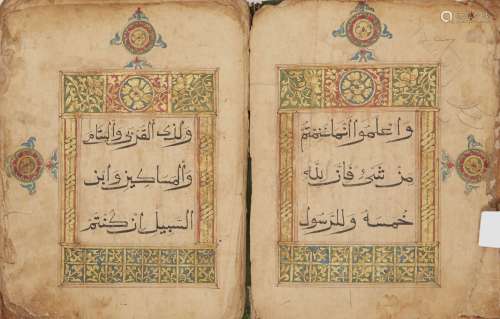 واعلموا انما غنمتم
من شئ فان لله
خمسه وللرسول
ولذي القربى واليتامى
والمساكين وابن
السبيل ان كنتم